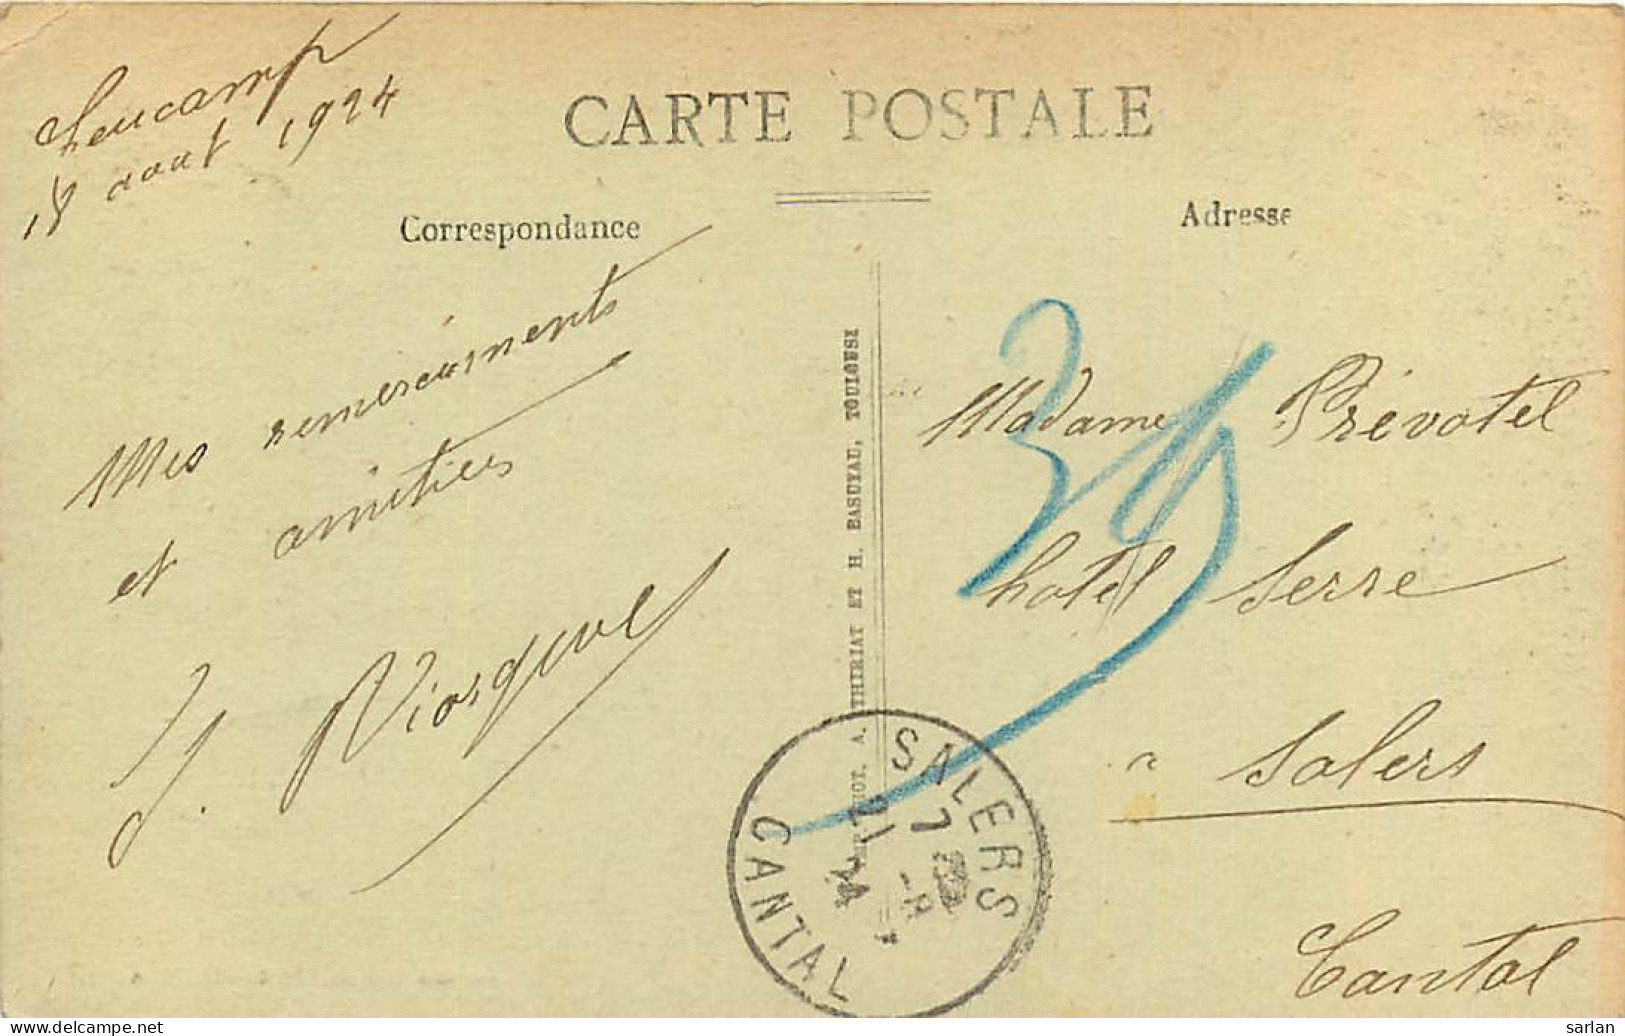 Leucamp
18 aout 1924
CARTE POSTALE
Correspondance
Adresse
Mes remerciements
et amitiés
J.
Madame Prévotel
hotel Serre
a Salers
Cantal
35
A. THIRIAT ET H. BASUYAU, TOULOUSE
SALERS
7
21 -8
24
CANTAL
www.delcampe.net
sarlan